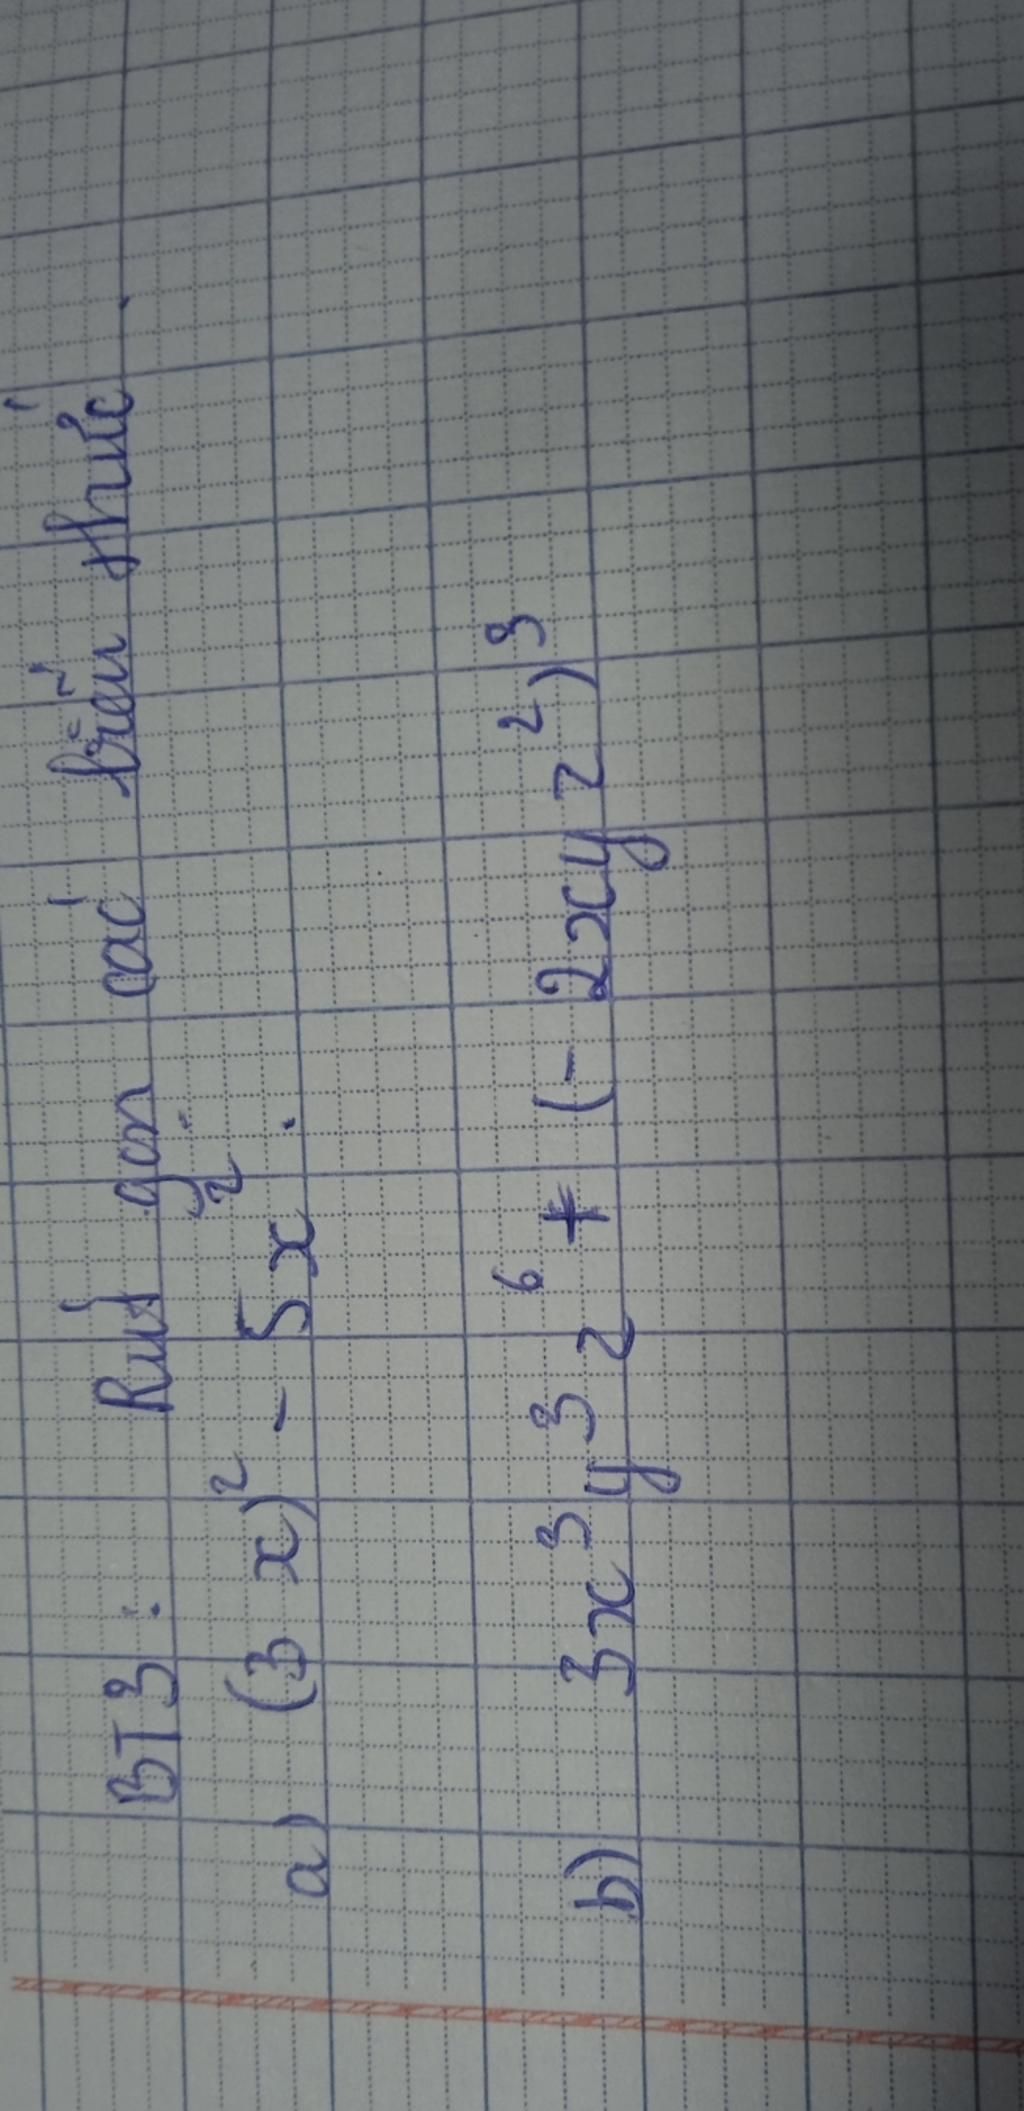 BT3: Rút gọn các biểu thức.
a) (3x)² - 5x².
b) 3x³y³z⁶ + (-2xyz²)³